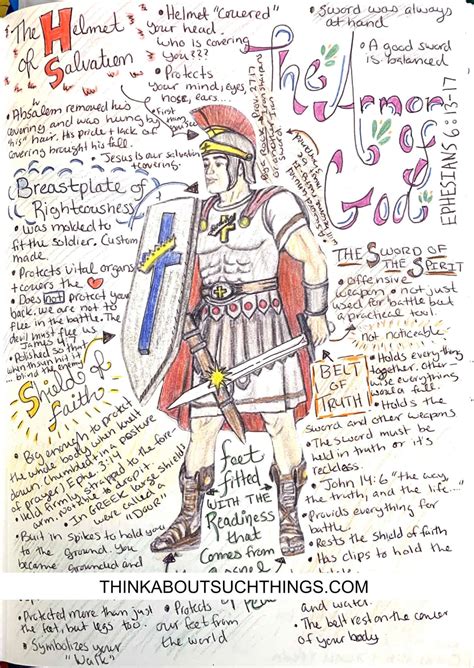 The Helmet
of
Salvation
• Helmet "Covered"
your head.
who is covering
you???
• Protects
your mind, eyes,
nose, ears....
• Sword was always
at hand
• A good sword
is balanced
The Armor
of
God
EPHESIANS 6:13-17
• Absalem removed his
covering and was hung by
his "hair". His pride + lack of
covering brought his fall.
• Jesus is our salvation
covering.
Breastplate of
Righteousness
• Was molded to
fit the soldier. Custom
made.
• Protects vital organs
+ covers the
• Does not protect your
back. we are not to
flee in the battle. The
devil must flee us
James 4:7
• Polished so that
when the sun hit it
blind the enemy
THE SWORD OF
THE SPIRIT
• Offensive
weapon, not just
used for battle but
a practical tool.
not noticeable
BELT
OF
TRUTH
• Holds everything
together, other-
wise everything
would fall
• Holds the
sword and other weapons
• The sword must be
held in truth or it's
reckless.
• John 14:6 "the way,
the truth, and the life...."
• Provides everything for
battle.
• Rests the shield of faith
• Has clips to hold the
Shield of
Faith
• Big enough to protect
the whole body when knelt
down, chumbled in a posture
of prayer! Eph 3:14
• Held firmly, strapped to the fore-
arm. Won't drop it.
• In GREEK large shields
were called a
"Door"
• Built in Spikes to hold you
to the ground. You
became grounded and
feet
fitted
WITH THE
Readiness
that
Comes from
THINKABOUTSUCHTHINGS.COM
• Protected more than just
the feet, but legs too.
• Symbolizes your
"Walk"
• Protects
our feet from
the world
and water.
• The belt rest on the center
of your body